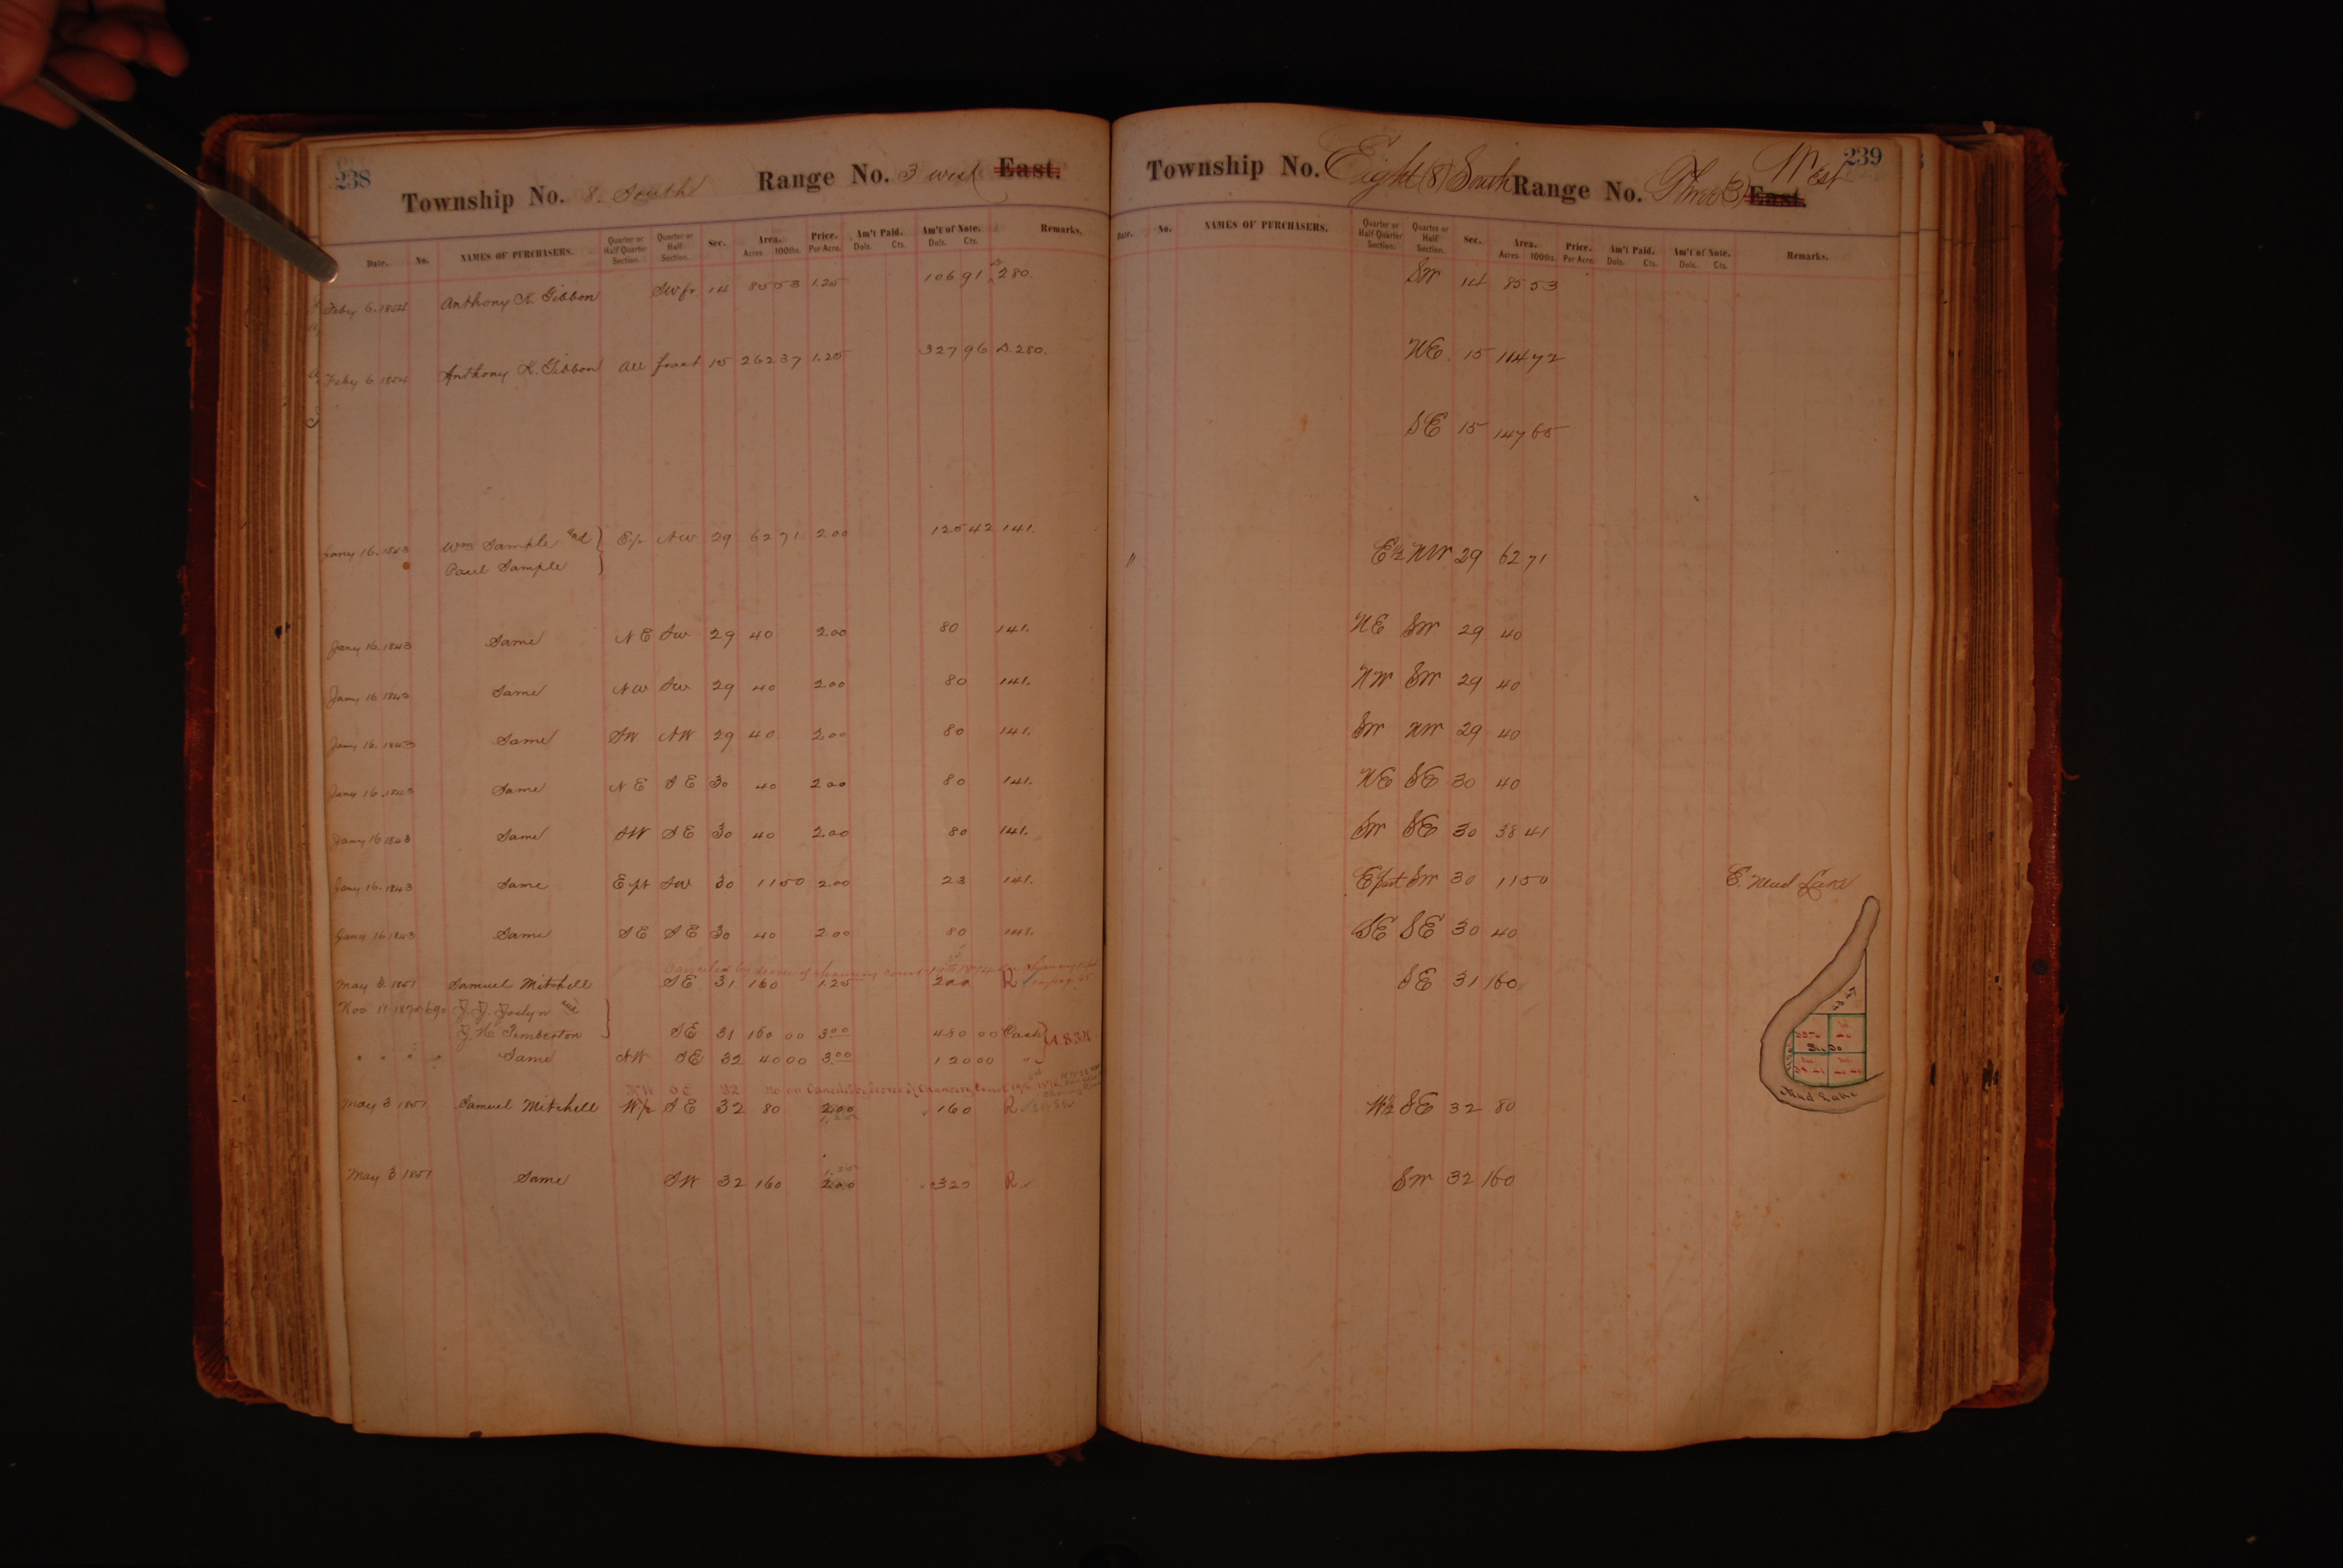 238
Township No. 8. South Range No. 3 west East.
Date. No. NAMES OF PURCHASERS. Quarter or Half Quarter Section. Quarter or Half Section. Sec. Area. Acres 100ths. Price. Per Acre. Am't Paid. Dols. Cts. Am't of Note. Dols. Cts. Remarks.
Feby 6. 1854 Anthony K. Gibbon SW fr. 14 85 53 1.25 106 91 280.
Feby 6 1854 Anthony K. Gibbon All fract 15 262 37 1.25 327 96 D. 280.
Jany 16. 1843 Wm Sample and E/2 NW 29 62 71 2.00 125 42 141.
Paul Sample
Jany 16. 1843 Same NE SW 29 40 2.00 80 141.
Jany 16 1843 Same NW SW 29 40 2.00 80 141.
Jany 16. 1843 Same SW NW 29 40 2.00 80 141.
Jany 16. 1843 Same NE SE 30 40 2.00 80 141.
Jany 16 1843 Same SW SE 30 40 2.00 80 141.
Jany 16. 1843 Same E pt SW 30 11 50 2.00 23 141.
Jany 16 1843 Same SE SE 30 40 2.00 80 141.
Canceled by decree of chancery court
May 3. 1851 Samuel Mitchell SE 31 160 1.25 200 R
Nov 11 1875 690 J. J. Joslyn and
J. H. Pemberton SE 31 160 00 3.00 480 00 Cash
" " " " Same NW SE 32 40 00 3.00 120 00 "
NW SE 32 Canceled by decree of Chancery Court
May 3 1851 Samuel Mitchell W/2 SE 32 80 2.00 160 R
1.25
May 3 1851 Same SW 32 160 2.00 320 R.
239
Township No. Eight (8) South Range No. Three (3) West East.
Date. No. NAMES OF PURCHASERS. Quarter or Half Quarter Section. Quarter or Half Section. Sec. Area. Acres 100ths. Price. Per Acre. Am't Paid. Dols. Cts. Am't of Note. Dols. Cts. Remarks.
SW 14 85 53
NE 15 114 72
SE 15 147 65
" E 1/2 NW 29 62 71
NE SW 29 40
NW SW 29 40
SW NW 29 40
NE SE 30 40
SW SE 30 38 41
E Part SW 30 11 50 E. Mud Lake
SE SE 30 40
SE 31 160
Mud Lake
W 1/2 SE 32 80
SW 32 160